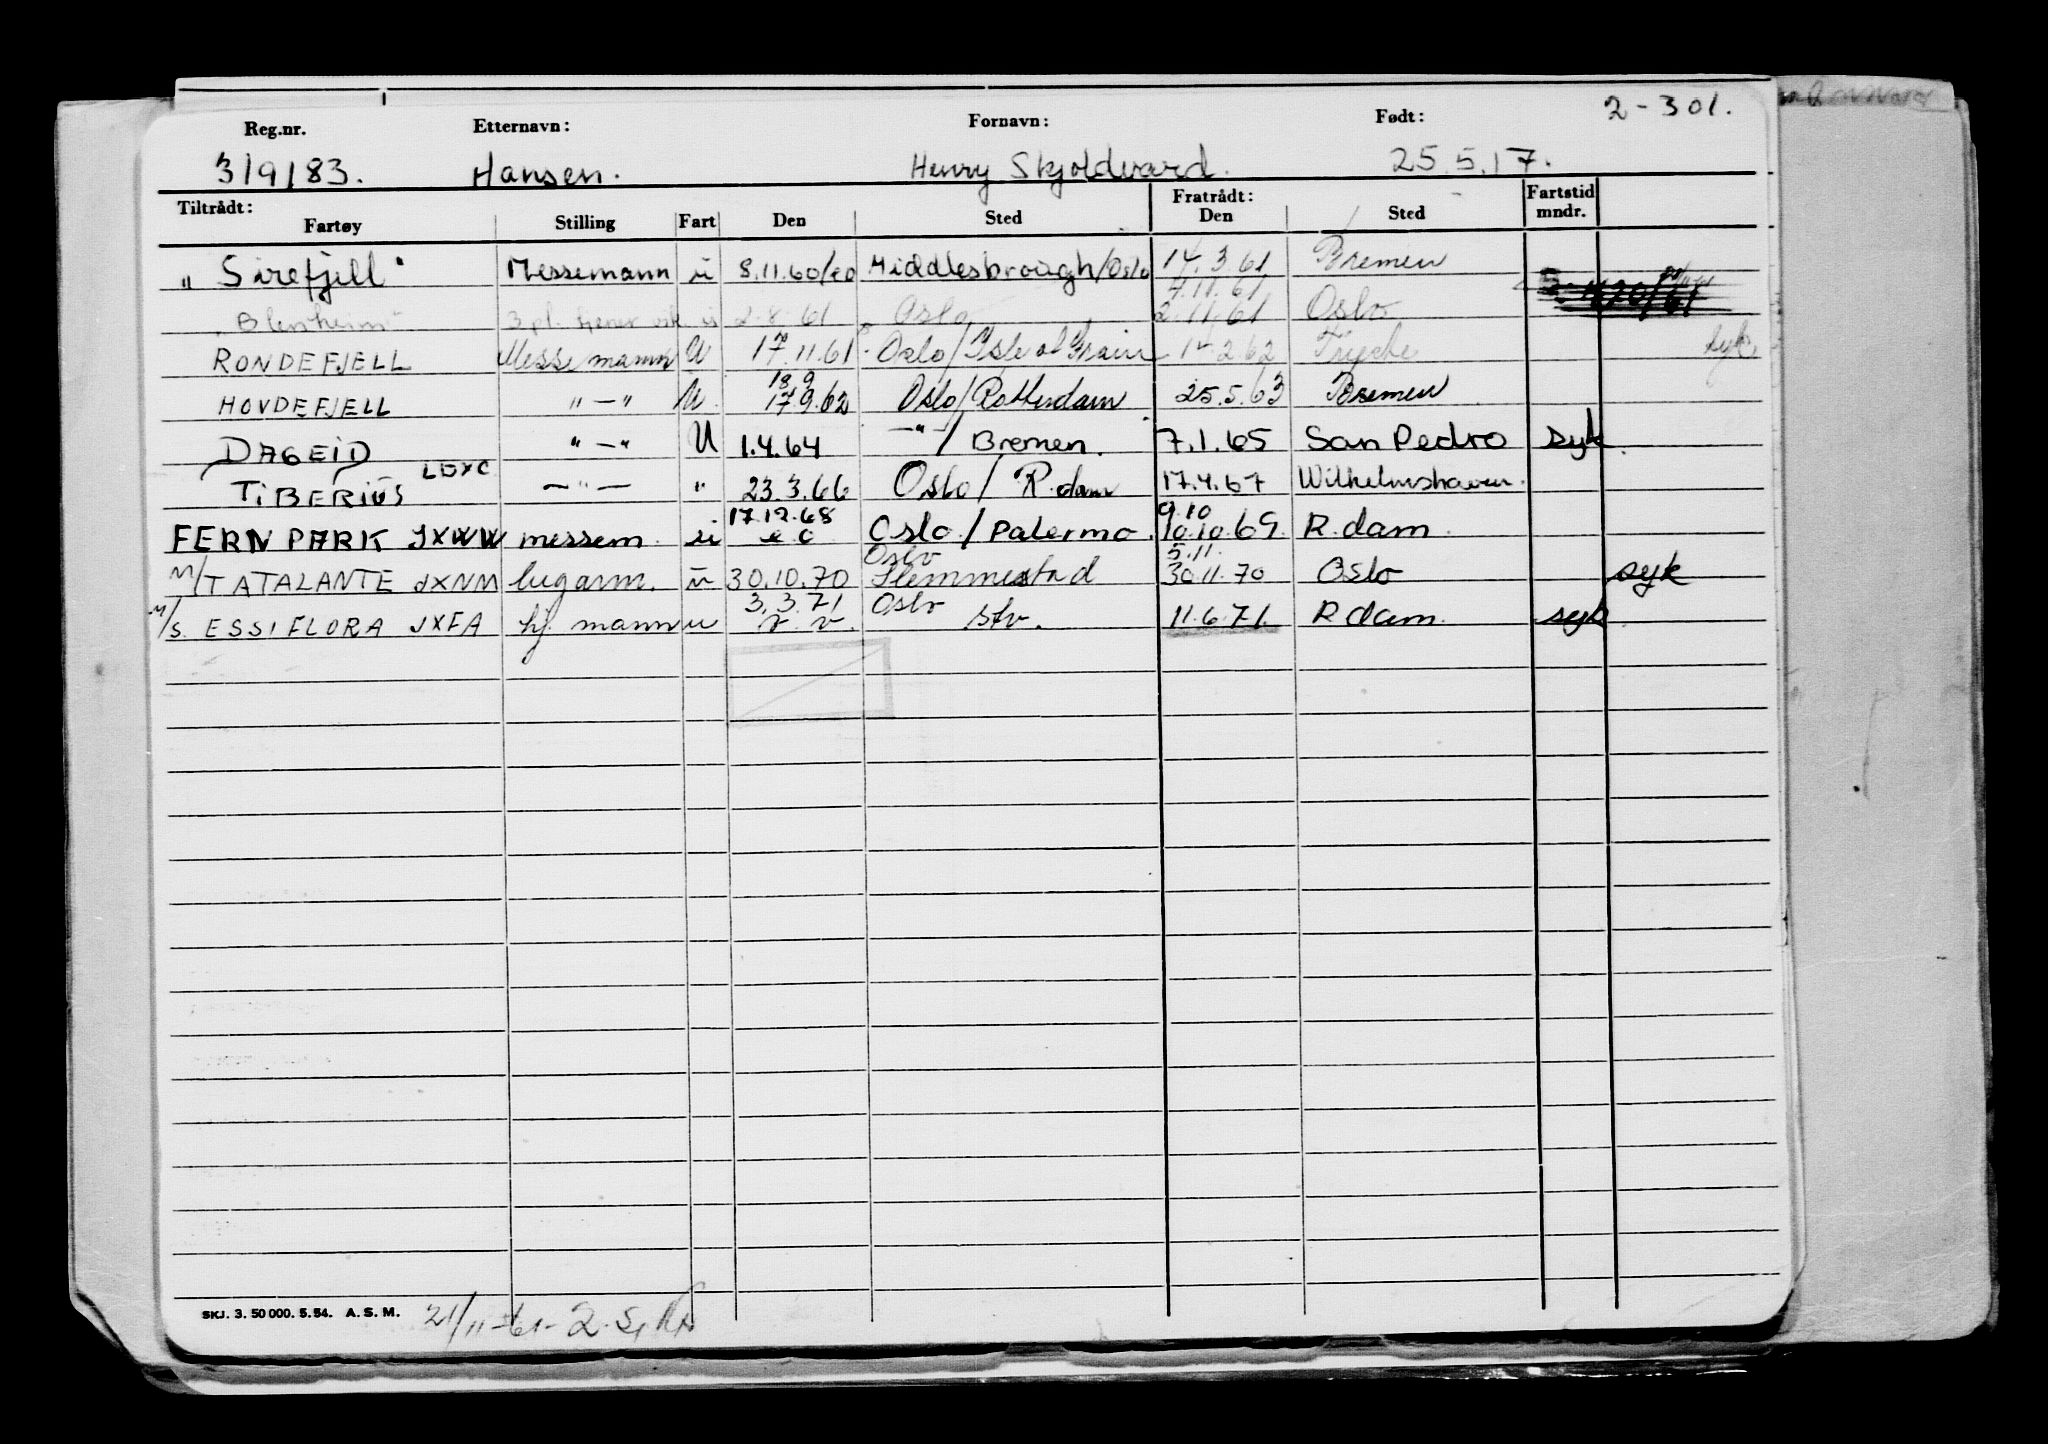 2 - 301.
Reg.nr. Etternavn: Fornavn: Født:
319183. Hansen. Henry Skjoldvard. 25.5.17.
Tiltrådt: Fratrådt: Fartstid
Fartøy Stilling Fart Den Sted Den Sted mndr.
"Sirefjell" Messemann u 8.11.60/eo Middlesbrough/Oslo 14.3.61 Bremen
7.11.61
"Blenheim" 2.8.61 Oslo 2.11.61 Oslo
RONDEFJELL Messemann U 17.11.61 Oslo/Isle of Grain 2.62 syk.
18.9
HOVDEFJELL "—" U 17.9.62 Oslo/Rotterdam 25.5.63 Bremen
DAGEID "—" U 1.4.64 —"—/Bremen. 7.1.65 San Pedro syk.
TIBERIUS LDXC —"— " 23.3.66 Oslo/R.dam 17.4.67 Wilhelmshaven.
17.12.68 9.10
FERN PARK JXWW messem. u e o Oslo/Palermo. 10.10.69. R.dam.
Oslo 5.11.
M/T ATALANTE JXNM lugarm. u 30.10.70 Slemmestad 30.11.70 Oslo syk
3.3.71 Oslo
M/S. ESSI FLORA JXFA hj. mann u stv. 11.6.71. R dam. syk.
SKJ. 3. 50 000. 5. 54. A. S. M. 21/11-61-